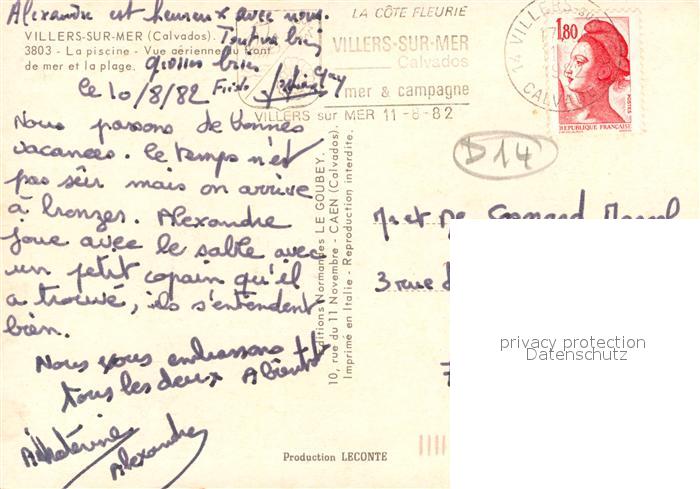 Alexandre est heureux avec nous.
Tout va bien
VILLERS-SUR-MER (Calvados).
3803 - La piscine - Vue aérienne du front
de mer et la plage.
grosses bises
Le 10/8/82
LA CÔTE FLEURIE
VILLERS-SUR-MER
Calvados
mer & campagne
VILLERS sur MER 11-8-82
14 VILLERS-sur
1982
CALVADOS
1,80
POSTES
REPUBLIQUE FRANÇAISE
D14
Nous passons de bonnes
vacances. le temps n'est
pas sûr mais on arrive
à bronzer. Alexandre
joue avec le sable avec
un petit copain qu'il
a trouvé, ils s'entendent
bien.
Nous vous embrassons
tous les deux A bientôt
Catherine
Alexandre
Editions Normandes LE GOUBEY
10, rue du 11 Novembre - CAEN (Calvados).
Imprimé en Italie - Reproduction interdite.
Mr et Me
3 rue
privacy protection
Datenschutz
7
Production LECONTE